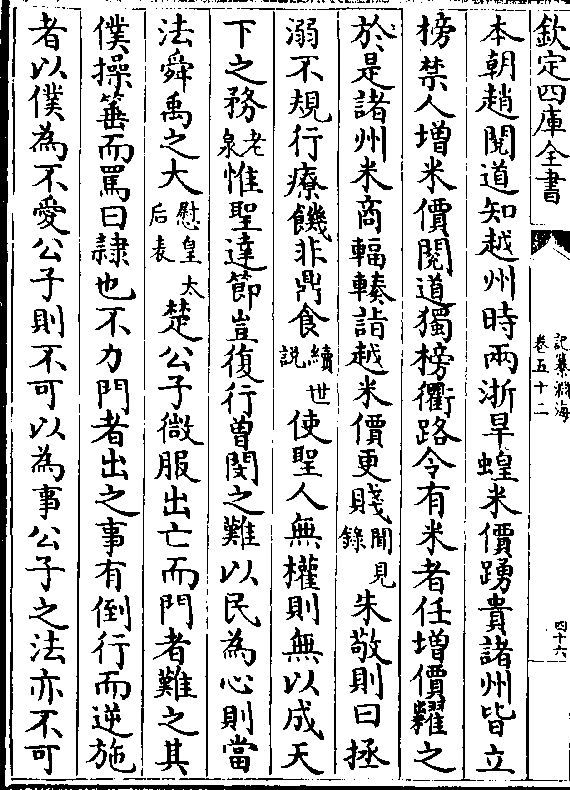 欽定四庫全書
記纂淵海
卷五十二
四十六
本朝趙閱道知越州時兩浙旱蝗米價踴貴諸州皆立
榜禁人增米價閱道獨榜衢路令有米者任增價糶之
於是諸州米商輻輳詣越米價更賤聞見錄朱敬則曰拯
溺不規行療饑非鼎食續世說使聖人無權則無以成天
下之務老泉惟聖達節豈復行曾閔之難以民為心則當
法舜禹之大慰皇太后表楚公子微服出亡而門者難之其
僕操箠而罵曰隷也不力門者出之事有倒行而逆施
者以僕為不愛公子則不可以為事公子之法亦不可